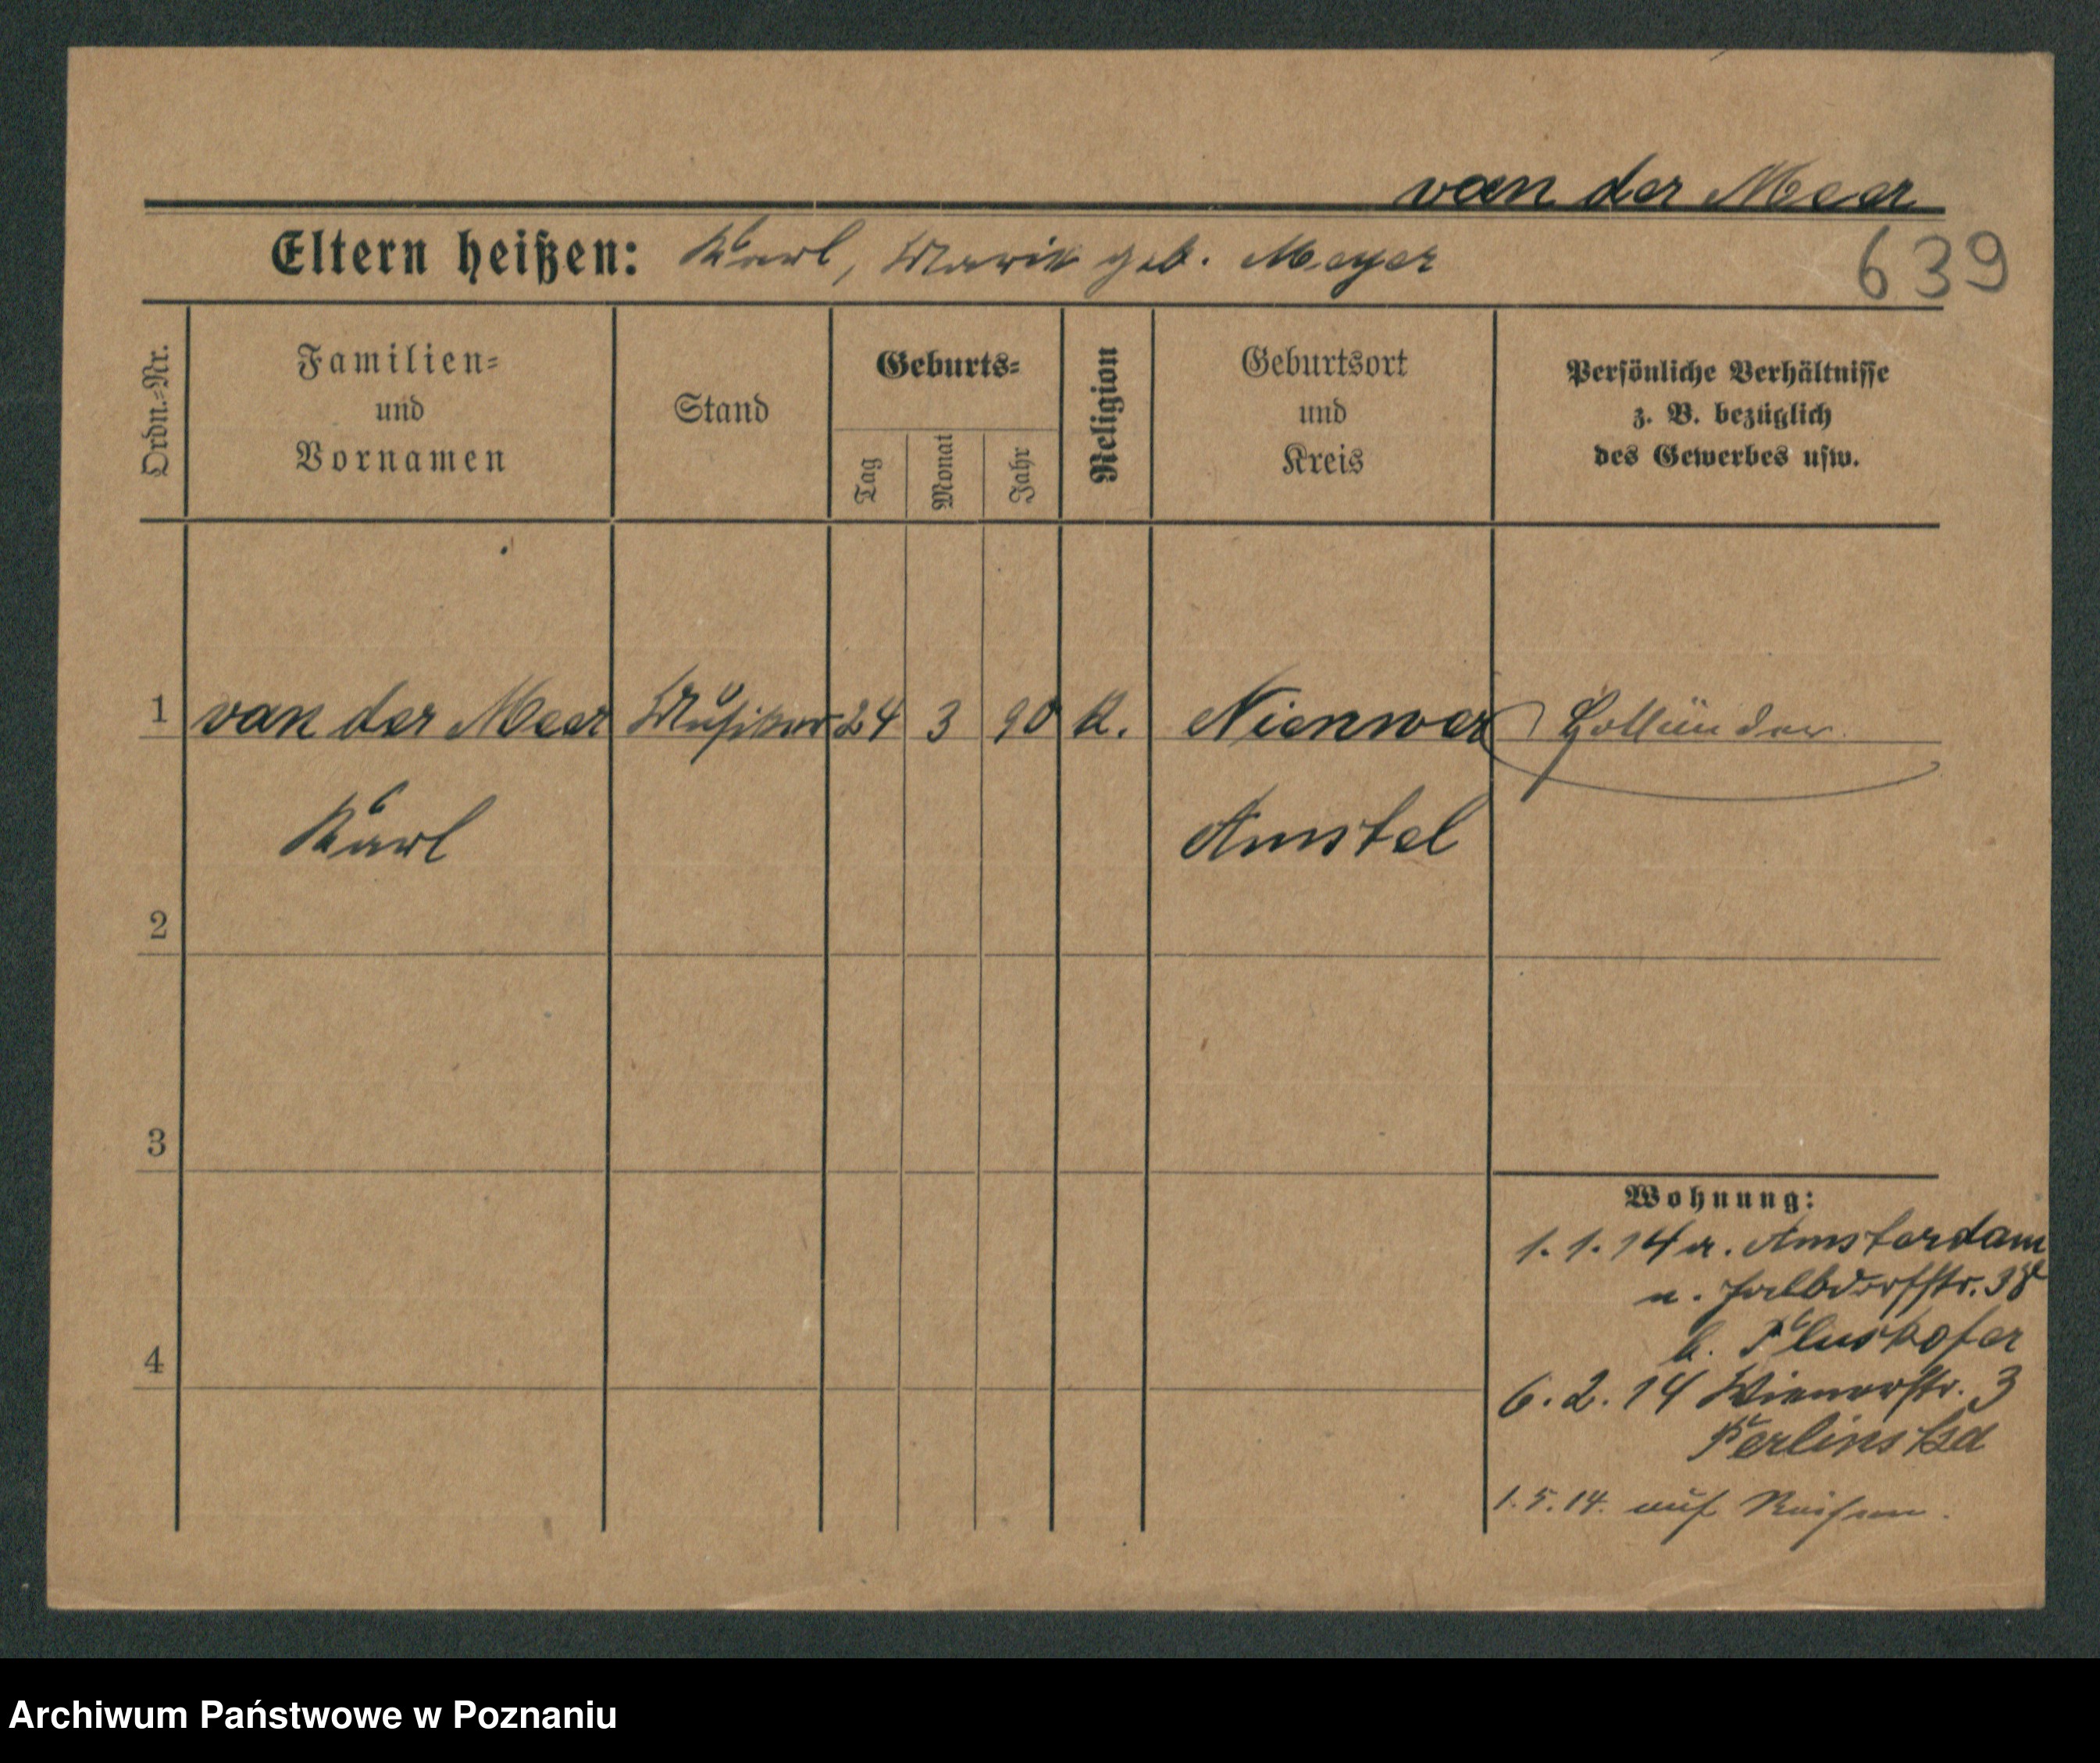 van der Meer
Eltern heißen: Karl, Marie geb. Meyer
639
Ordn.-Nr.
Familien-
und
Vornamen
Stand
Geburts-
Tag
Monat
Jahr
Religion
Geburtsort
und
Kreis
Persönliche Verhältnisse
z. B. bezüglich
des Gewerbes usw.
1 van der Meer Musiker 24 3 90 K. Nienwer Holländer
Karl Amstel
2
3
4
Wohnung:
1.1.14 a. Amsterdam
n. Halbdorfstr. 38
b. Pluskofer
6.2.14 Wienerstr. 3
Perlinska
1.5.14. auf Reisen.
Archiwum Państwowe w Poznaniu